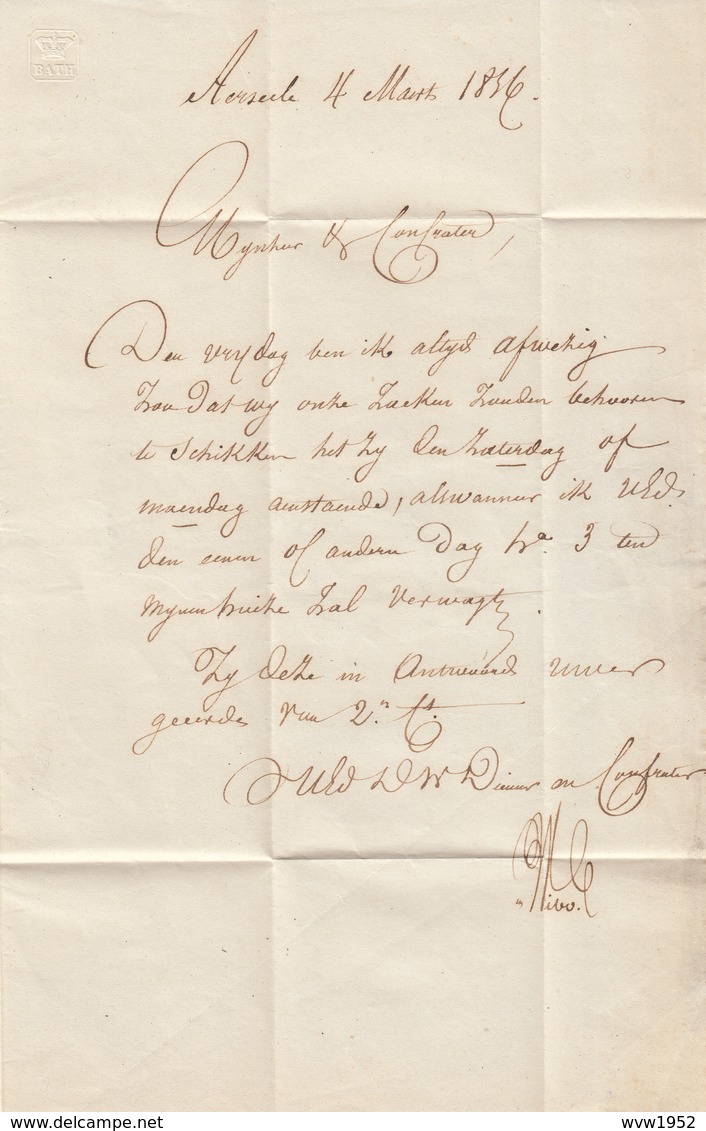 BATH
Aerseele 4 Maert 1856.
Mynheer & Confrater,
Den vrydag ben ik altyd afwezig
Zoo dat wy onze Zaeken Zouden behooren
te Schikken het Zy den Zaterdag of
maendag aenstaende, alswanneer ik UEd.
den eenen of anderen Dag 3 ten
mynen huize Zal verwagten.
Zy deze in Antwoord uwer
geeerde van 2n Ct.
UEd D W Dienaer en Confrater
delcampe.net
wvw1952